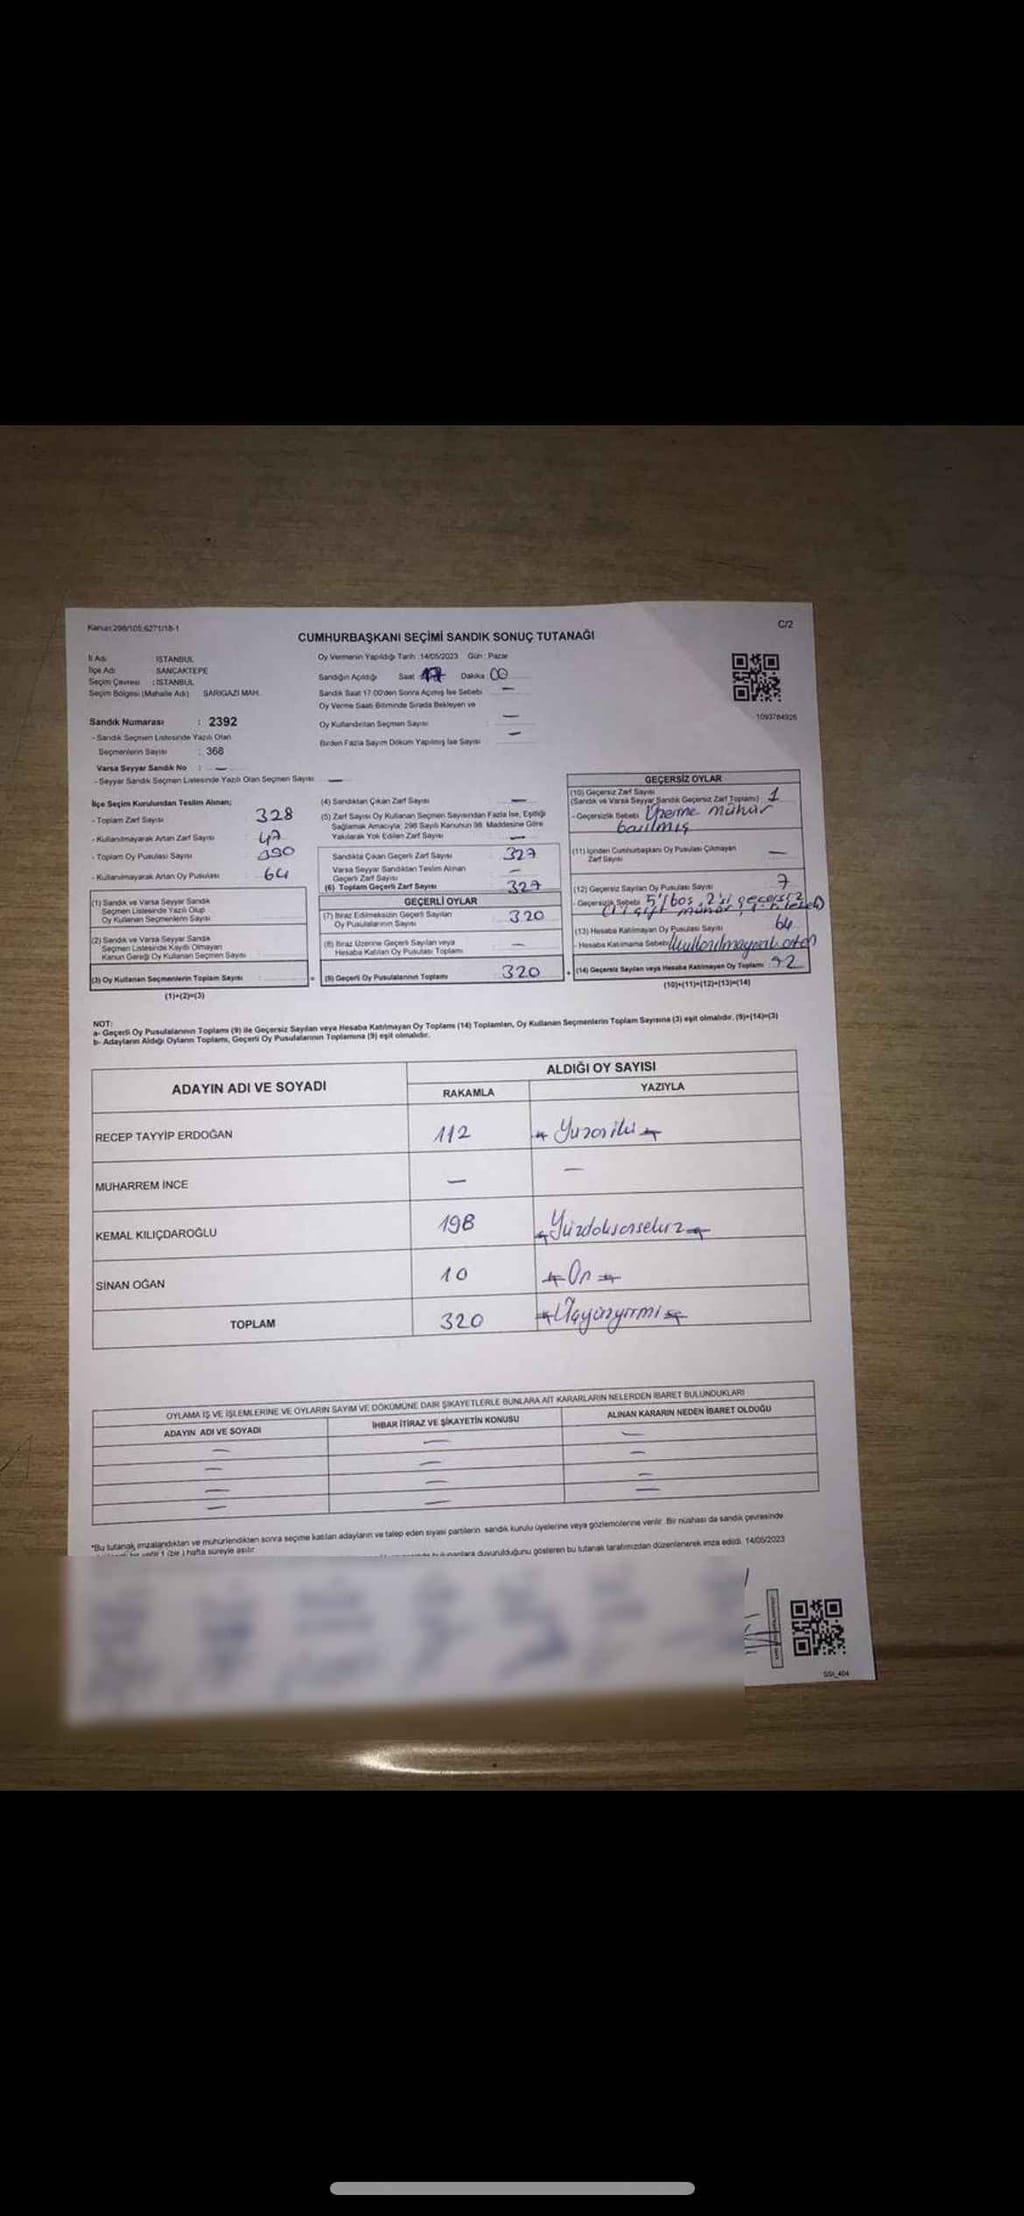 Kanun:298/105;6271/18-1
C/2
CUMHURBAŞKANI SEÇİMİ SANDIK SONUÇ TUTANAĞI
İl Adı : İSTANBUL
İlçe Adı : SANCAKTEPE
Seçim Çevresi : İSTANBUL
Seçim Bölgesi (Mahalle Adı) SARIGAZİ MAH.
Oy Vermenin Yapıldığı Tarih :14/05/2023 Gün : Pazar
Sandığın Açıldığı Saat 17 Dakika 00
Sandık Saat 17:00'den Sonra Açılmış İse Sebebi —
Oy Verme Saati Bitiminde Sırada Bekleyen ve
Oy Kullandırılan Seçmen Sayısı —
Birden Fazla Sayım Döküm Yapılmış İse Sayısı —
1093784926
Sandık Numarası : 2392
- Sandık Seçmen Listesinde Yazılı Olan
Seçmenlerin Sayısı : 368
Varsa Seyyar Sandık No : —
- Seyyar Sandık Seçmen Listesinde Yazılı Olan Seçmen Sayısı —
İlçe Seçim Kurulundan Teslim Alınan;
- Toplam Zarf Sayısı 328
- Kullanılmayarak Artan Zarf Sayısı 47
- Toplam Oy Pusulası Sayısı 390
- Kullanılmayarak Artan Oy Pusulası 64
(1) Sandık ve Varsa Seyyar Sandık
Seçmen Listesinde Yazılı Olup
Oy Kullanan Seçmenlerin Sayısı
(2) Sandık ve Varsa Seyyar Sandık
Seçmen Listesinde Kayıtlı Olmayan
Kanun Gereği Oy Kullanan Seçmen Sayısı
(3) Oy Kullanan Seçmenlerin Toplam Sayısı
(1)+(2)=(3)
(4) Sandıktan Çıkan Zarf Sayısı —
(5) Zarf Sayısı Oy Kullanan Seçmen Sayısından Fazla İse, Eşitliği
Sağlamak Amacıyla; 298 Sayılı Kanunun 98. Maddesine Göre
Yakılarak Yok Edilen Zarf Sayısı —
Sandıkta Çıkan Geçerli Zarf Sayısı 327
Varsa Seyyar Sandıktan Teslim Alınan
Geçerli Zarf Sayısı —
(6) Toplam Geçerli Zarf Sayısı 327
GEÇERLİ OYLAR
(7) İtiraz Edilmeksizin Geçerli Sayılan
Oy Pusulalarının Sayısı 320
(8) İtiraz Üzerine Geçerli Sayılan veya
Hesaba Katılan Oy Pusulası Toplamı —
(9) Geçerli Oy Pusulalarının Toplamı 320
GEÇERSİZ OYLAR
(10) Geçersiz Zarf Sayısı
(Sandık ve Varsa Seyyar Sandık Geçersiz Zarf Toplamı) 1
- Geçersizlik Sebebi Üzerine mühür
basılmış
(11) İçinden Cumhurbaşkanı Oy Pusulası Çıkmayan
Zarf Sayısı —
(12) Geçersiz Sayılan Oy Pusulası Sayısı 7
- Geçersizlik Sebebi 5'i boş, 2'si geçersiz
çift mühür
(13) Hesaba Katılmayan Oy Pusulası Sayısı 64
- Hesaba Katılmama Sebebi Kullanılmayarak artan
(14) Geçersiz Sayılan veya Hesaba Katılmayan Oy Toplamı 92
(10)+(11)+(12)+(13)=(14)
NOT:
a- Geçerli Oy Pusulalarının Toplamı (9) ile Geçersiz Sayılan veya Hesaba Katılmayan Oy Toplamı (14) Toplamları, Oy Kullanan Seçmenlerin Toplam Sayısına (3) eşit olmalıdır. (9)+(14)=(3)
b- Adayların Aldığı Oyların Toplamı, Geçerli Oy Pusulalarının Toplamına (9) eşit olmalıdır.
ADAYIN ADI VE SOYADI
ALDIĞI OY SAYISI
RAKAMLA YAZIYLA
RECEP TAYYİP ERDOĞAN 112 Yüzoniki
MUHARREM İNCE — —
KEMAL KILIÇDAROĞLU 198 Yüzdoksansekiz
SİNAN OĞAN 10 On
TOPLAM 320 Üçyüzyirmi
OYLAMA İŞ VE İŞLEMLERİNE VE OYLARIN SAYIM VE DÖKÜMÜNE DAİR ŞİKAYETLERLE BUNLARA AİT KARARLARIN NELERDEN İBARET BULUNDUKLARI
ADAYIN ADI VE SOYADI İHBAR İTİRAZ VE ŞİKAYETİN KONUSU ALINAN KARARIN NEDEN İBARET OLDUĞU
— — —
— — —
— — —
— — —
*Bu tutanak, imzalandıktan ve mühürlendikten sonra seçime katılan adayların ve talep eden siyasi partilerin sandık kurulu üyelerine veya gözlemcilerine verilir. Bir nüshası da sandık çevresinde
1 (bir) hafta süreyle asılır.
duyurulduğunu gösteren bu tutanak tarafımızdan düzenlenerek imza edildi. 14/05/2023
SSI_404